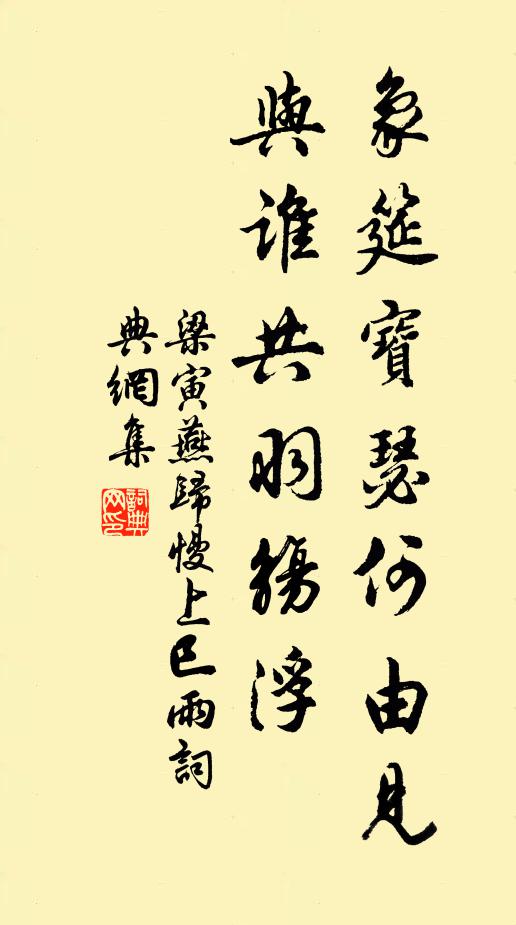 象筵寶瑟何由見
與誰共羽觴浮
梁寅燕歸慢上巳雨詞
典網集
詞典網印